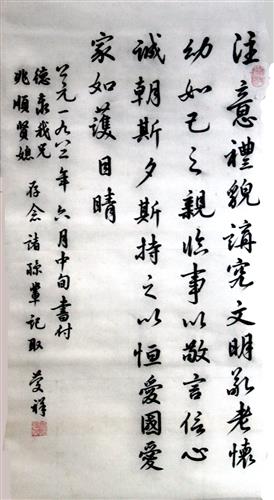 注意禮貌講究文明敬老懷
幼如己之親臨事以敬言信心
誠朝斯夕斯持之以恒愛國愛
家如護目睛
公元一九八三年六月中旬書付
德泰我兄
兆順賢媳 存念諸孫輩記取
慶祥